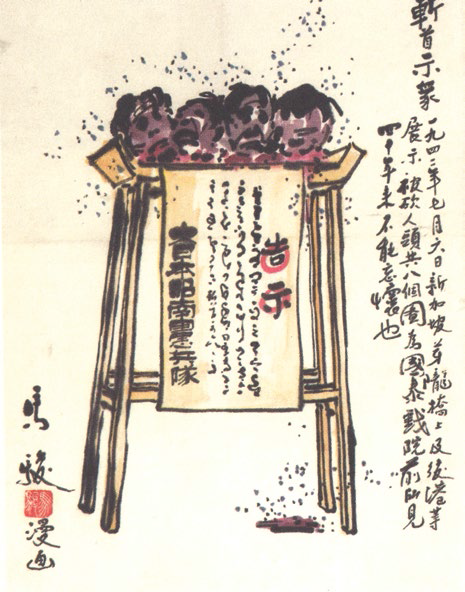 斬首示衆
一九四二年七月六日新加坡芽龍橋上及後港等
展示被砍人頭共八個圖為國泰戲院前所見
四十年来不能忘懷也
告示
大日本昭南憲兵隊
馬駿
漫画